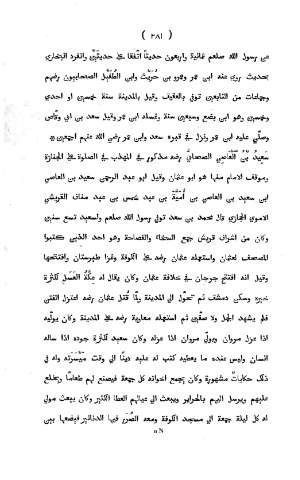 ( ٢٨١ )
عن رسول الله صلعم ثمانية واربعون حديثا اتّفقا على حديثَيْن وانفرد البخارى
بحديث روى عنه ابن عمر وعمرو بن حُرَيْث وابى الطُفَيْل الصحابيون رضهم
وجماعات من التابعين توفى بالعقيق وقيل بالمدينة سنة خمسين او احدى
وخمسين وهو ابن بضع وسبعين سنة وغسله ابن عمر وقيل سعد بن ابى وقاص
وصلّى عليه ابن عمر ونزل فى قبره سعد وابن عمر رضى الله عنهم اجمعين ۞
سَعِيدُ بْنُ الْعَاصِى الصحابىّ رضه مذكور فى المهذب فى الصلوة على الجنازة
وموقف الامام منها هو ابو عثمان وقيل ابو عبد الرحمن سعيد بن العاصى
ابن سعيد بن العاصى بن اُمَيَّةَ بن عبد شمس بن عبد مناف القريشى
الاموى الحجازى قال محمد بن سعد توفى رسول الله صلعم ولسعيد تسع سنين
وكان من اشراف قريش جمع السخاء والفصاحة وهو احد الذين كتبوا
المصحف لعثمان واستعمله عثمان رضه على الكوفة وغزا طبرستان وافتتحها
وقيل انه افتتح جرجان فى خلافة عثمان وكان يقال له عُكَّةُ الْعَسَلِ لكثرة
خيره وسكن دمشق ثم تحوّل الى المدينة ولمّا قُتل عثمان رضه اعتزل الفتن
فلم يشهد الجمل ولا صفّين ثم استعمله معاوية رضه على المدينة وكان يولّيه
اذا عزل مروان ويولّى مروان اذا عزله وكان سعيد كثير الجود اذا ساله
انسان وليس عنده ما يعطيه كتب له عليه دينًا الى وقت مَيْسَرَته وله فى
ذلك حكاياتٌ مشهورة وكان يجمع اخوانه كل جمعة فيصنع لهم طعامًا ويخلع
عليهم ويرسل اليهم بالجوايز ويبعث الى عيالهم العطا الكثير وكان يبعث مولى
له كل ليلة جمعة الى مسجد الكوفة ومعه الصُّرَر فيها الدنانير فيضعها بين